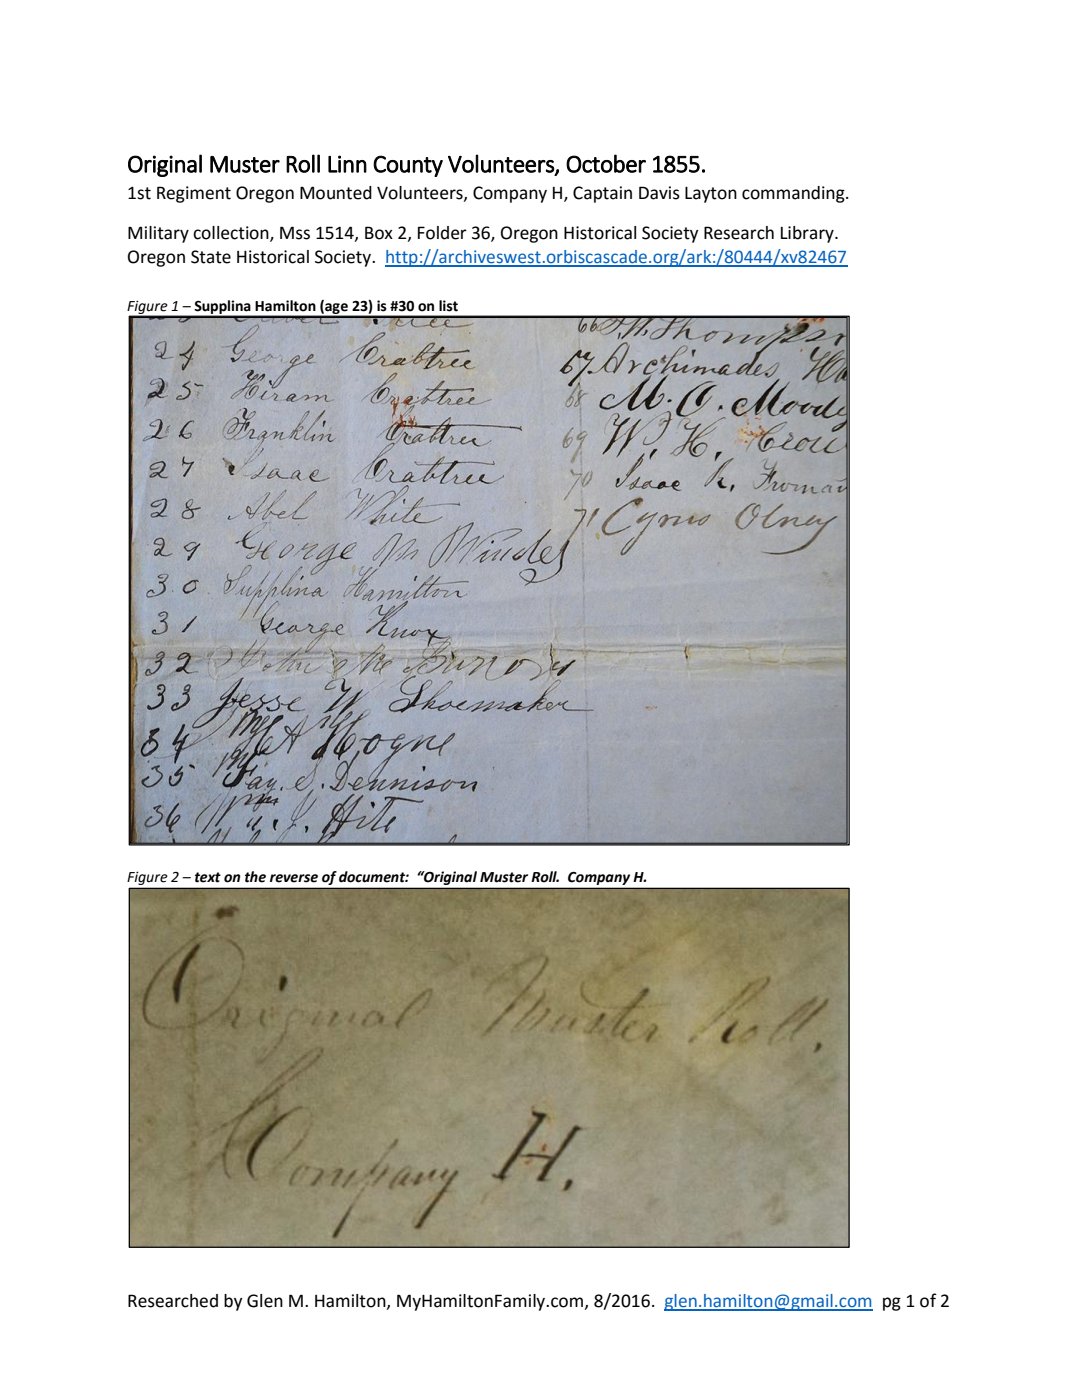 Original Muster Roll Linn County Volunteers, October 1855.
1st Regiment Oregon Mounted Volunteers, Company H, Captain Davis Layton commanding.
Military collection, Mss 1514, Box 2, Folder 36, Oregon Historical Society Research Library.
Oregon State Historical Society. http://archiveswest.orbiscascade.org/ark:/80444/xv82467
Figure 1 – Supplina Hamilton (age 23) is #30 on list
24 George Crabtree
25 Hiram Crabtree
26 Franklin Crabtree
27 Isaac Crabtree
28 Abel White
29 George M
30 Supplina Hamilton
31 George Knox
32
33 Jesse W Shoemaker
34 A Hogue
35 Jay. S. Dennison
36 Wm. J. Hite
66 Thompson
67. Archimades
68 M. C. Moody
69 W. H.
70 Isaac R. Froman
71 Cyrus Olney
Figure 2 – text on the reverse of document: “Original Muster Roll. Company H.
Original Muster Roll.
Company H.
Researched by Glen M. Hamilton, MyHamiltonFamily.com, 8/2016. glen.hamilton@gmail.com pg 1 of 2